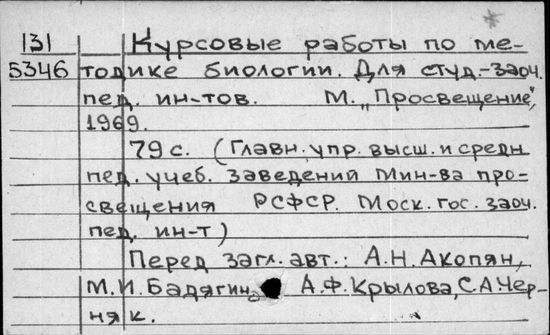 131 Курсовые работы по ме-
5346 тодике биологии. Для студ.-заоч.
пед. ин-тов. М. „Просвещение”,
1969.
79 с. (Главн. упр. высш. и средн
пед. учеб. заведений Мин-ва про-
свещения РСФСР. Моск. гос. заоч.
пед. ин-т)
Перед загл. авт.: А.Н. Акопян,
М.И. Бадягин, А.Ф. Крылова, С.А. Чер-
няк.